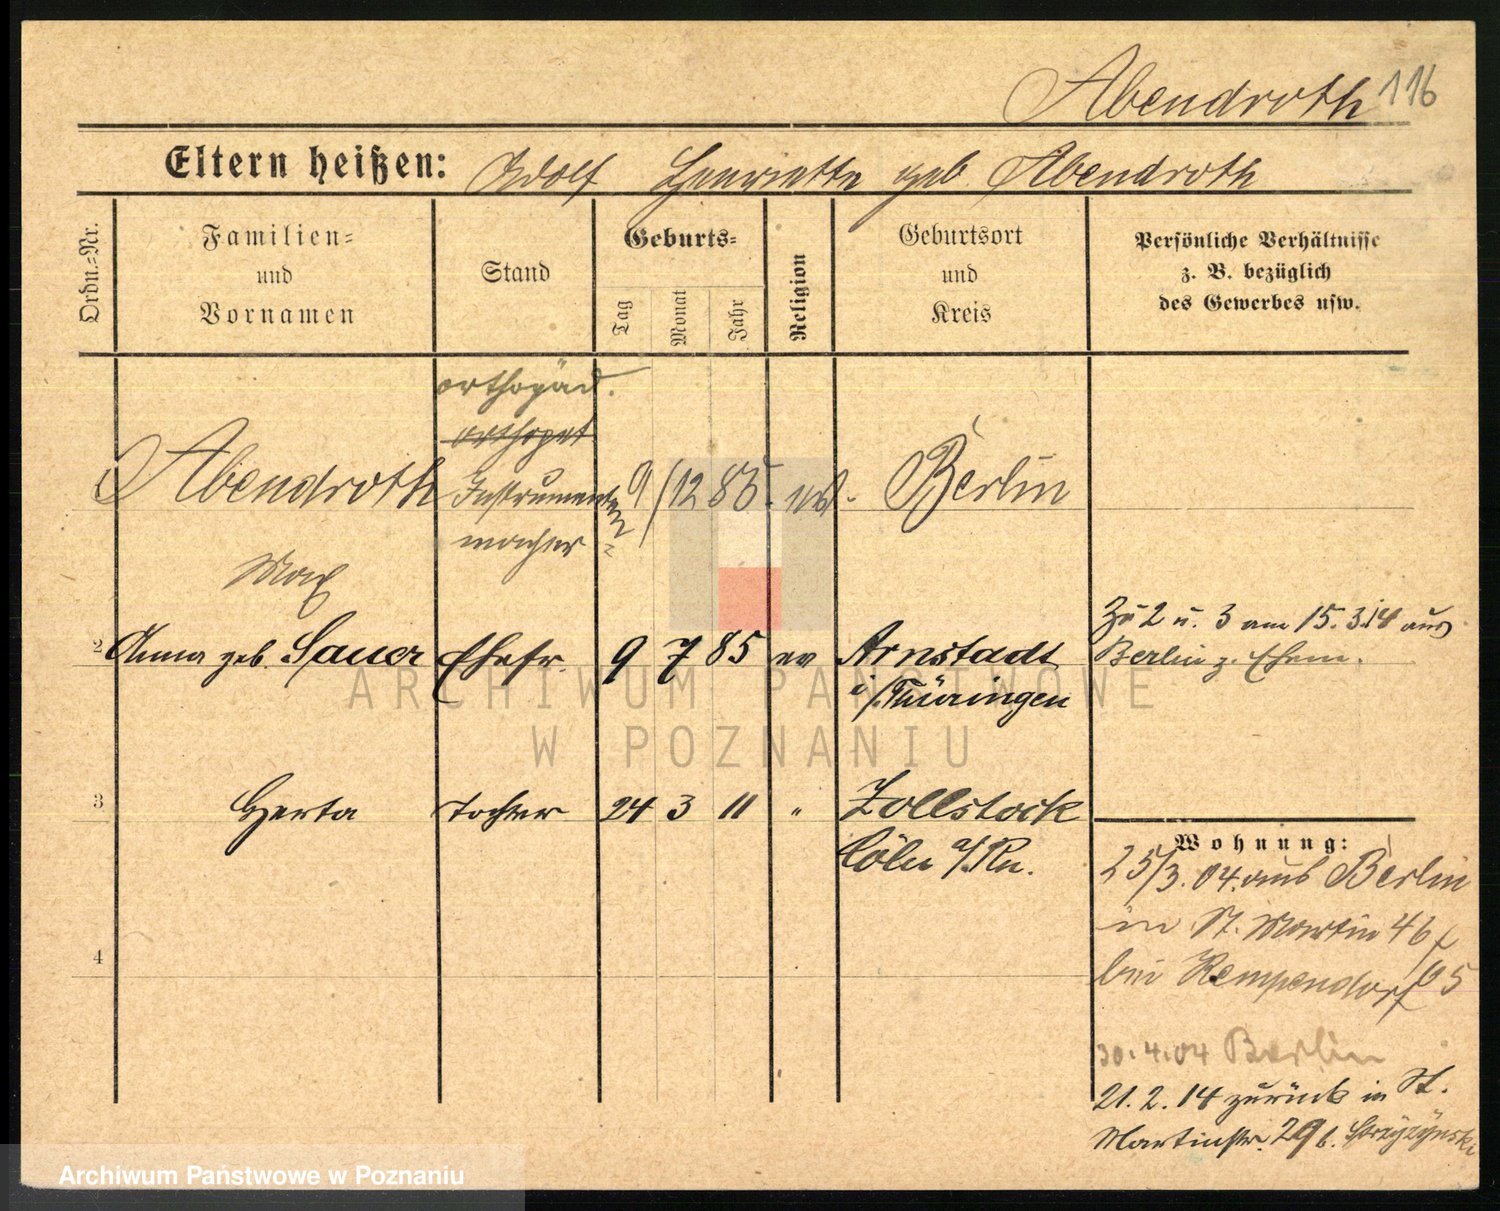 Abendroth 116
Eltern heißen: Adolf Henriette geb Abendroth
Ordn.=Nr.
Familien=
und
Vornamen
Stand
Geburts=
Tag
Monat
Jahr
Religion
Geburtsort
und
Kreis
Persönliche Verhältnisse
z. B. bezüglich
des Gewerbes usw.
orthopäd.
orthopet
Abendroth Instrumenten= 9/12 85. ev. Berlin
macher
Max
2 Anna geb. Sauer Ehefr. 9 7 85 ev Arnstadt
i/Thüringen
Zu 2 u. 3 am 15.3.14 aus
Berlin z. Ehem.
3 Herta Tochter 24 3 11 " Zollstock
Cöln a/Rn.
4
Wohnung:
25/3.04. aus Berlin
in St. Martin 46
bei Kempendorf
30.4.04 Berlin
21.2.14 zurück in St.
Martinstr. 29 b.
ARCHIWUM PAŃSTWOWE
W POZNANIU
Archiwum Państwowe w Poznaniu